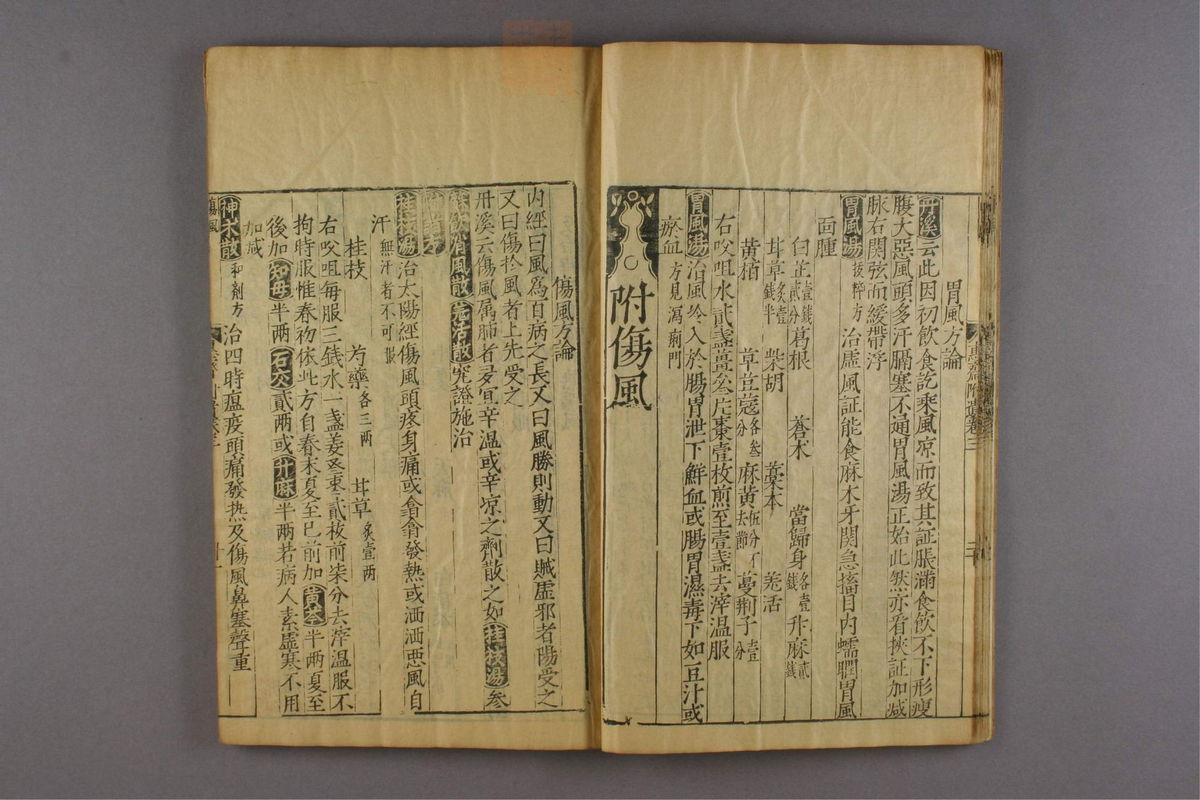 胃風方論
丹溪云此因初飲食訖乘風凉而致其証脹滿食飲不下形瘦
腹大惡風頭多汗膈塞不通胃風湯正始此然亦看挾証加减
脉右関弦而緩帶浮
胃風湯拔粹方治虚風証能食麻木牙関急搐目内蠕瞤胃風
面腫
白芷壹錢貳分葛根 蒼术 當歸身各壹錢升麻貳錢
甘草炙壹錢半 柴胡 藁本 羗活
黄栢 草荳蔻各叁分麻黄伍分不去節蔓荆子壹分
右㕮咀水貳盞薑叁片棗壹枚煎至壹盞去滓温服
胃風湯治風冷入於腸胃泄下鮮血或腸胃濕毒下如豆汁或
瘀血方見瀉痢門
附傷風
傷風方論
内經曰風爲百病之長又曰風勝則動又曰賊虚邪者陽受之
又曰傷於風者上先受之
丹溪云傷風属肺者多宜辛温或辛凉之劑散之如桂枝湯参
蘇飲消風散羗活散究證施治
桂枝湯治太陽經傷風頭疼身痛或翕翕發熱或洒洒惡風自
汗無汗者不可服
桂枝 芍藥各三两 甘草炙壹两
右㕮咀每服三錢水一盞姜叁棗貳枚煎柒分去滓温服不
拘時服惟春初依此方自春末夏至已前加黄芩半两夏至
後加知母半两石膏貳两或升麻半两若病人素虚寒不用
加减
神术散和剤方治四時瘟疫頭痛發热及傷風鼻塞聲重
傷風